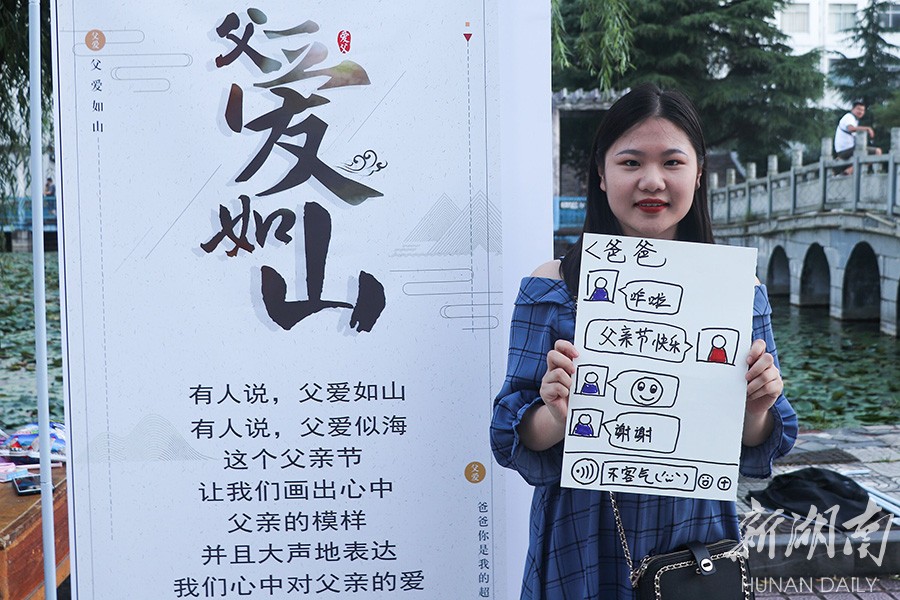 父爱
父爱如山
父爱如山
爱父
有人说，父爱如山
有人说，父爱似海
这个父亲节
让我们画出心中
父亲的模样
并且大声地表达
我们心中对父亲的爱
父爱
爸爸你是我的超
<爸爸
咋啦
父亲节快乐
谢谢
不客气
新湖南
HUNAN DAILY